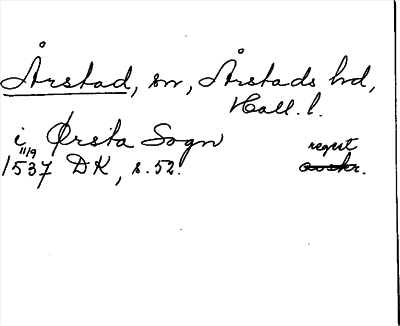 Årstad, sn, Årstads hd,
Hall. l.
i Ørsta Sogn
1537 11/9 DK, s. 52.
regest
avskr.